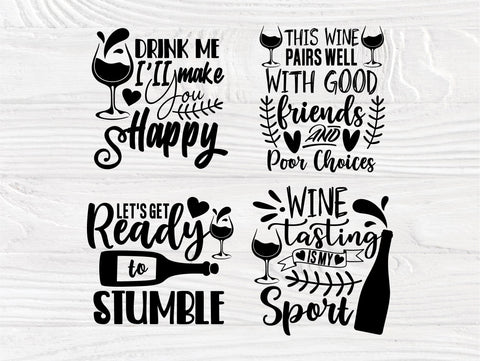 DRINK ME
I'll make
You
Happy
THIS WINE
PAIRS WELL
WITH GOOD
friends
AND
Poor Choices
LET'S GET
Ready
to
STUMBLE
WINE
tasting
IS MY
Sport